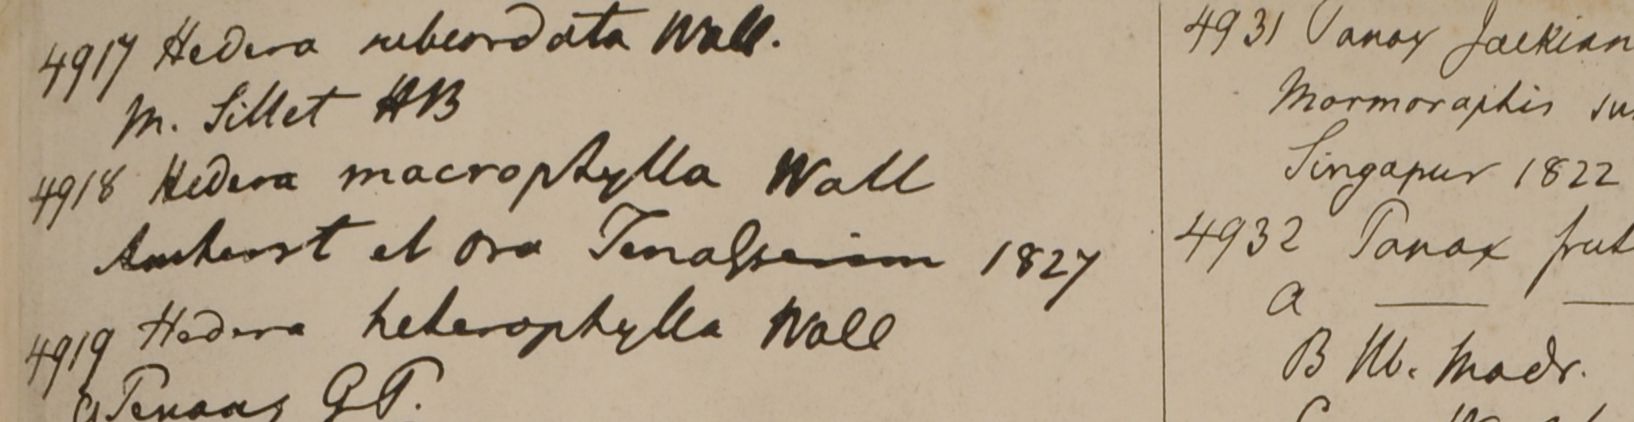 4917 Hedera subcordata Wall.
M. Sillet HB
4918 Hedera macrophylla Wall
Amherst et ora Tenasserim 1827
4919 Hedera heterophylla Wall
Penang G.P.
4931 Panax Jackian
Singapur 1822
4932 Panax frut
a
B Hb. Madr.